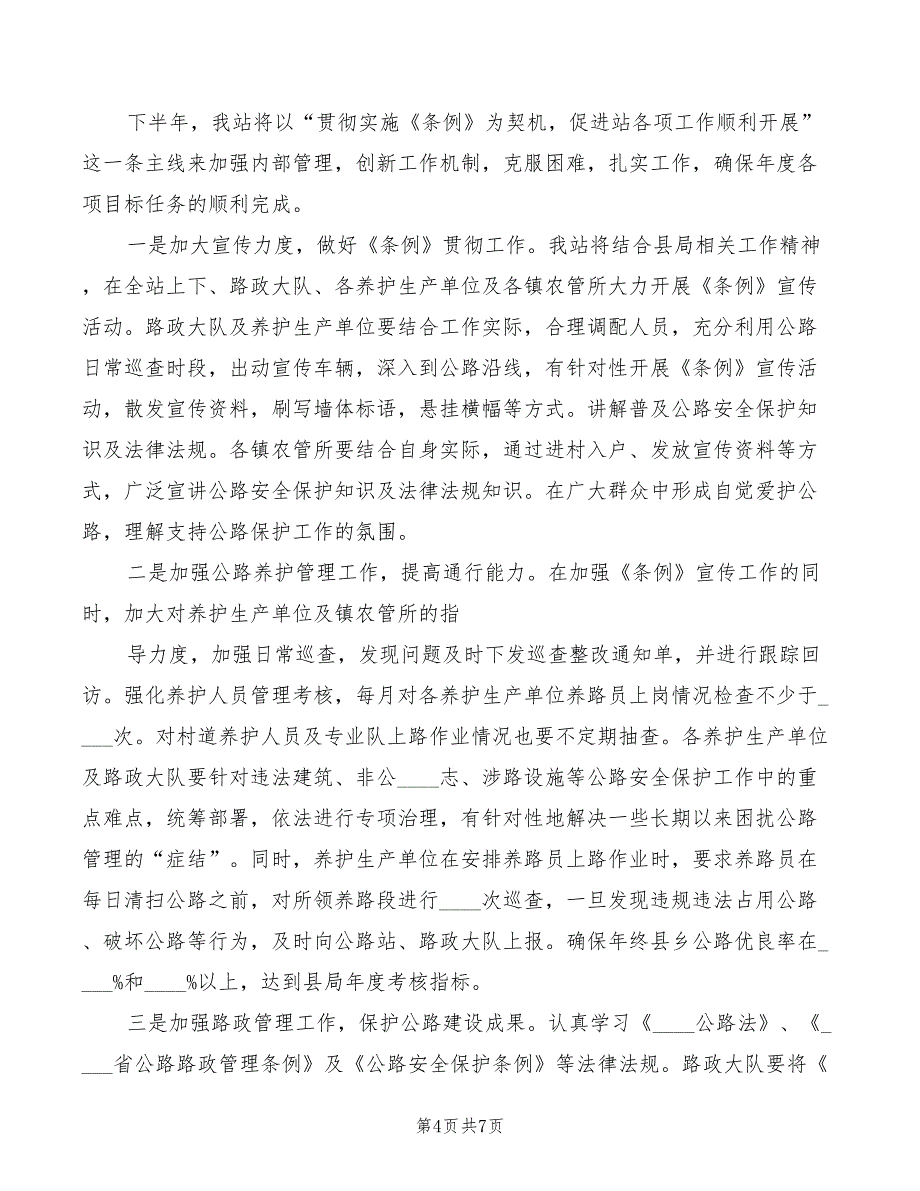 下半年，我站将以“贯彻实施《条例》为契机，促进站各项工作顺利开展”
这一条主线来加强内部管理，创新工作机制，克服困难，扎实工作，确保年度各
项目标任务的顺利完成。
一是加大宣传力度，做好《条例》贯彻工作。我站将结合县局相关工作精神
，在全站上下、路政大队、各养护生产单位及各镇农管所大力开展《条例》宣传
活动。路政大队及养护生产单位要结合工作实际，合理调配人员，充分利用公路
日常巡查时段，出动宣传车辆，深入到公路沿线，有针对性开展《条例》宣传活
动，散发宣传资料，刷写墙体标语，悬挂横幅等方式。讲解普及公路安全保护知
识及法律法规。各镇农管所要结合自身实际，通过进村入户、发放宣传资料等方
式，广泛宣讲公路安全保护知识及法律法规知识。在广大群众中形成自觉爱护公
路，理解支持公路保护工作的氛围。
二是加强公路养护管理工作，提高通行能力。在加强《条例》宣传工作的同
时，加大对养护生产单位及镇农管所的指
导力度，加强日常巡查，发现问题及时下发巡查整改通知单，并进行跟踪回
访。强化养护人员管理考核，每月对各养护生产单位养路员上岗情况检查不少于_
___次。对村道养护人员及专业队上路作业情况也要不定期抽查。各养护生产单位
及路政大队要针对违法建筑、非公____志、涉路设施等公路安全保护工作中的重
点难点，统筹部署，依法进行专项治理，有针对性地解决一些长期以来困扰公路
管理的“症结”。同时，养护生产单位在安排养路员上路作业时，要求养路员在
每日清扫公路之前，对所领养路段进行____次巡查，一旦发现违规违法占用公路
、破坏公路等行为，及时向公路站、路政大队上报。确保年终县乡公路优良率在_
___%和____%以上，达到县局年度考核指标。
三是加强路政管理工作，保护公路建设成果。认真学习《____公路法》、《_
___省公路路政管理条例》及《公路安全保护条例》等法律法规。路政大队要将《
第4页共7页